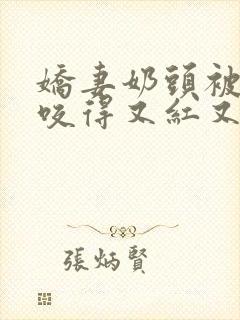 嬌妻奶頭被
咬得又紅又
張炳賢